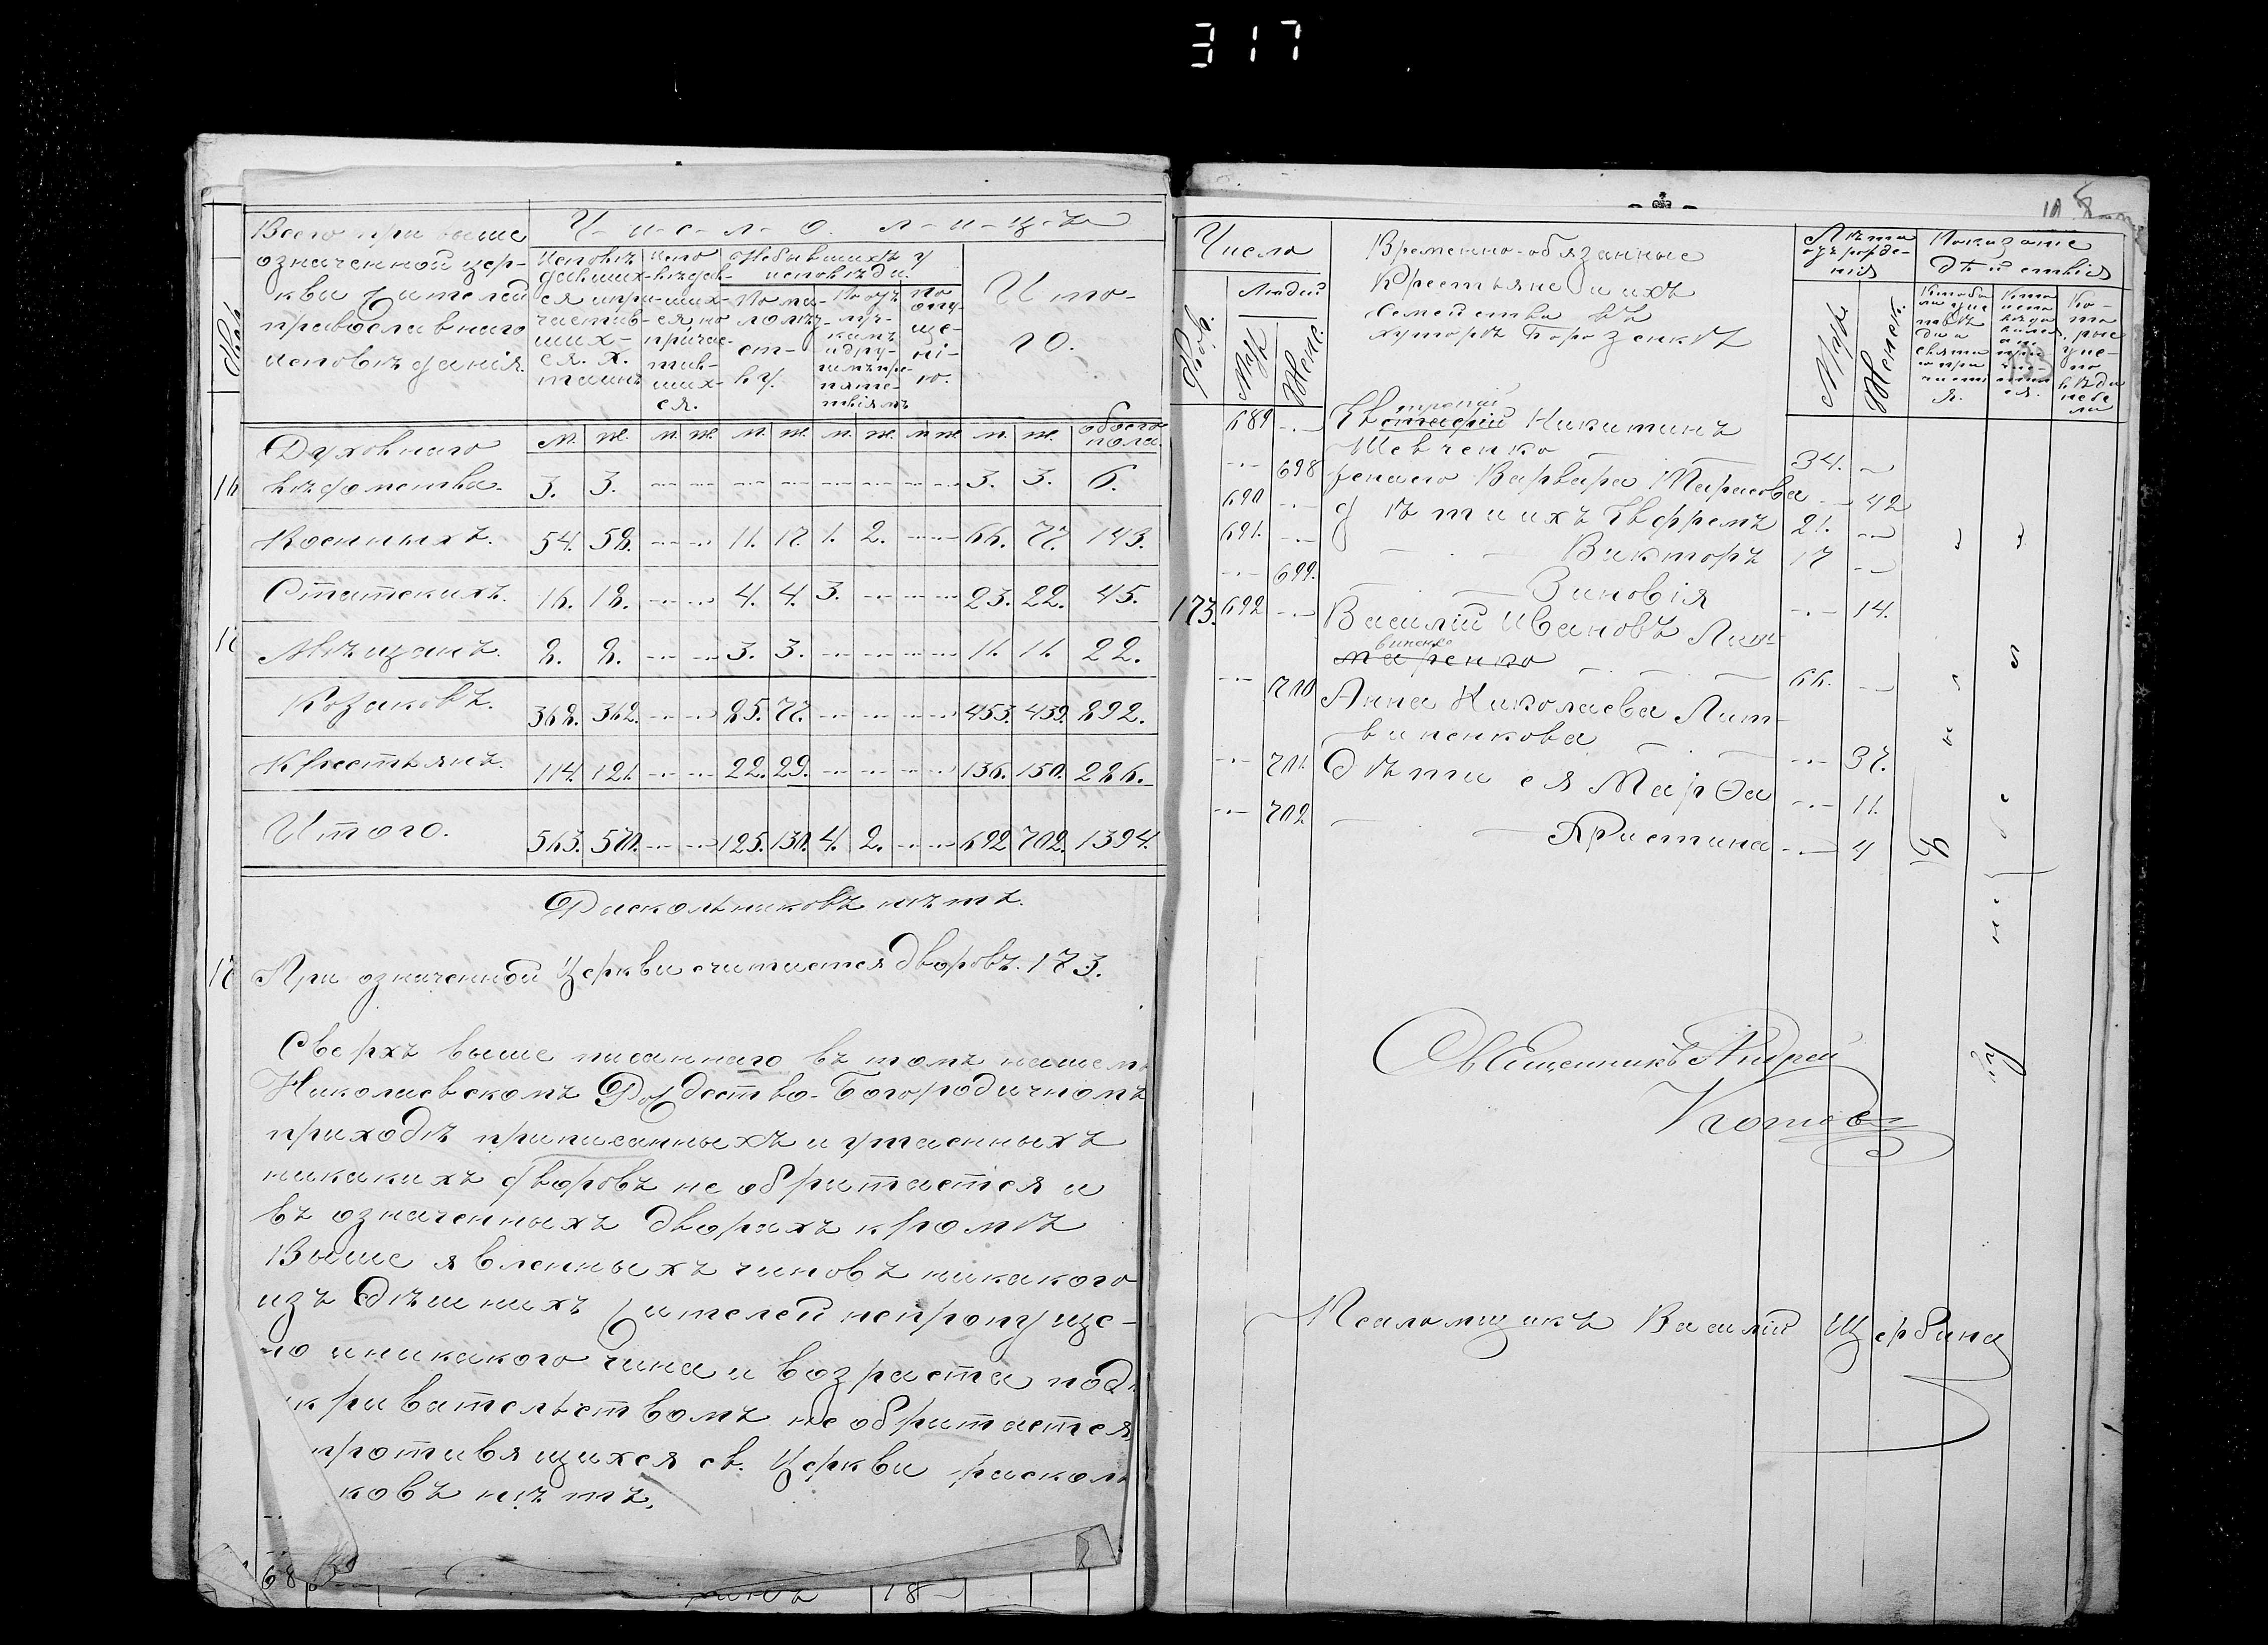 317
Всего при выше
означенной цер-
кви жителей
православнаго
исповѣданія.
Ч-и-с-л-о. л-и-ц-ъ
Исповѣ-
давших-
ся и при-
частив-
ших-
ся. х.
Испо
вѣдав-
ших-
ся, но
не
причас-
тив-
ших-
ся.
Небывшихъ у
исповѣди.
По ма-
лолѣт-
ст-
ву.
По отъ
луч-
камъ
и дру-
гимъ пре-
пятс-
твіямъ
По
опу-
ще-
ні-
ю.
Ито-
го.
м. ж. м. ж. м. ж. м. ж. м. ж. м. ж. обоего пола.
Духовнаго
вѣдомства. 3. 3. 3. 3. 6.
Военныхъ. 54. 58. 11. 17. 1. 2. 66. 77. 143.
Статскихъ. 16. 18. 4. 4. 3. 23. 22. 45.
Мѣщанъ. 8. 8. 3. 3. 11. 11. 22.
Козаковъ. 368. 362. 85. 77. 453. 439. 892.
Крестьянъ. 114. 121. 22. 29. 136. 150. 286.
Итого. 563. 570. 125. 130. 4. 2. 692. 702. 1394.
Раскольниковъ нѣтъ.
При означенной Церкви считается дворовъ. 173.
Сверхъ выше писаннаго въ томъ нашемъ
Николаевскомъ Рождество-Богородичномъ
приходѣ приписанныхъ и утаенныхъ
никакихъ дворовъ не обритается и
въ означенныхъ дворахъ кромѣ
Выше явленныхъ чиновъ никакого
изъ здѣшнихъ жителей непропуще-
но иникакого чина и возраста подъ
икривательствомъ не обритается
противящихся св. Церкви расколь
ковъ нѣтъ.
68
18
Числа
Двор.
Людей
Муж
Женс.
Временно-обязанные
Крестьяне и ихъ
Семейства въ
хуторѣ Борозенкѣ
Лѣта
отъ рожде-
нія
Муж
Женск.
Показаніе
дѣйствія
689 Евстафій Никитинъ
тропій
Шевченко 34.
698 жена его Варвара Тарасова 42
690 дѣти ихъ Ефремъ 21.
691. Викторъ 17
699. Зиновія 14.
173. 692 Василій Ивановъ Лит-
винске
таренко 66.
700 Анна Николаева Лит-
виненкова 37.
701. Дѣти ея Марѳа 11.
702 Христина 4
Священникъ Андрей
Котовъ
Псаломщикъ Василій Щербина